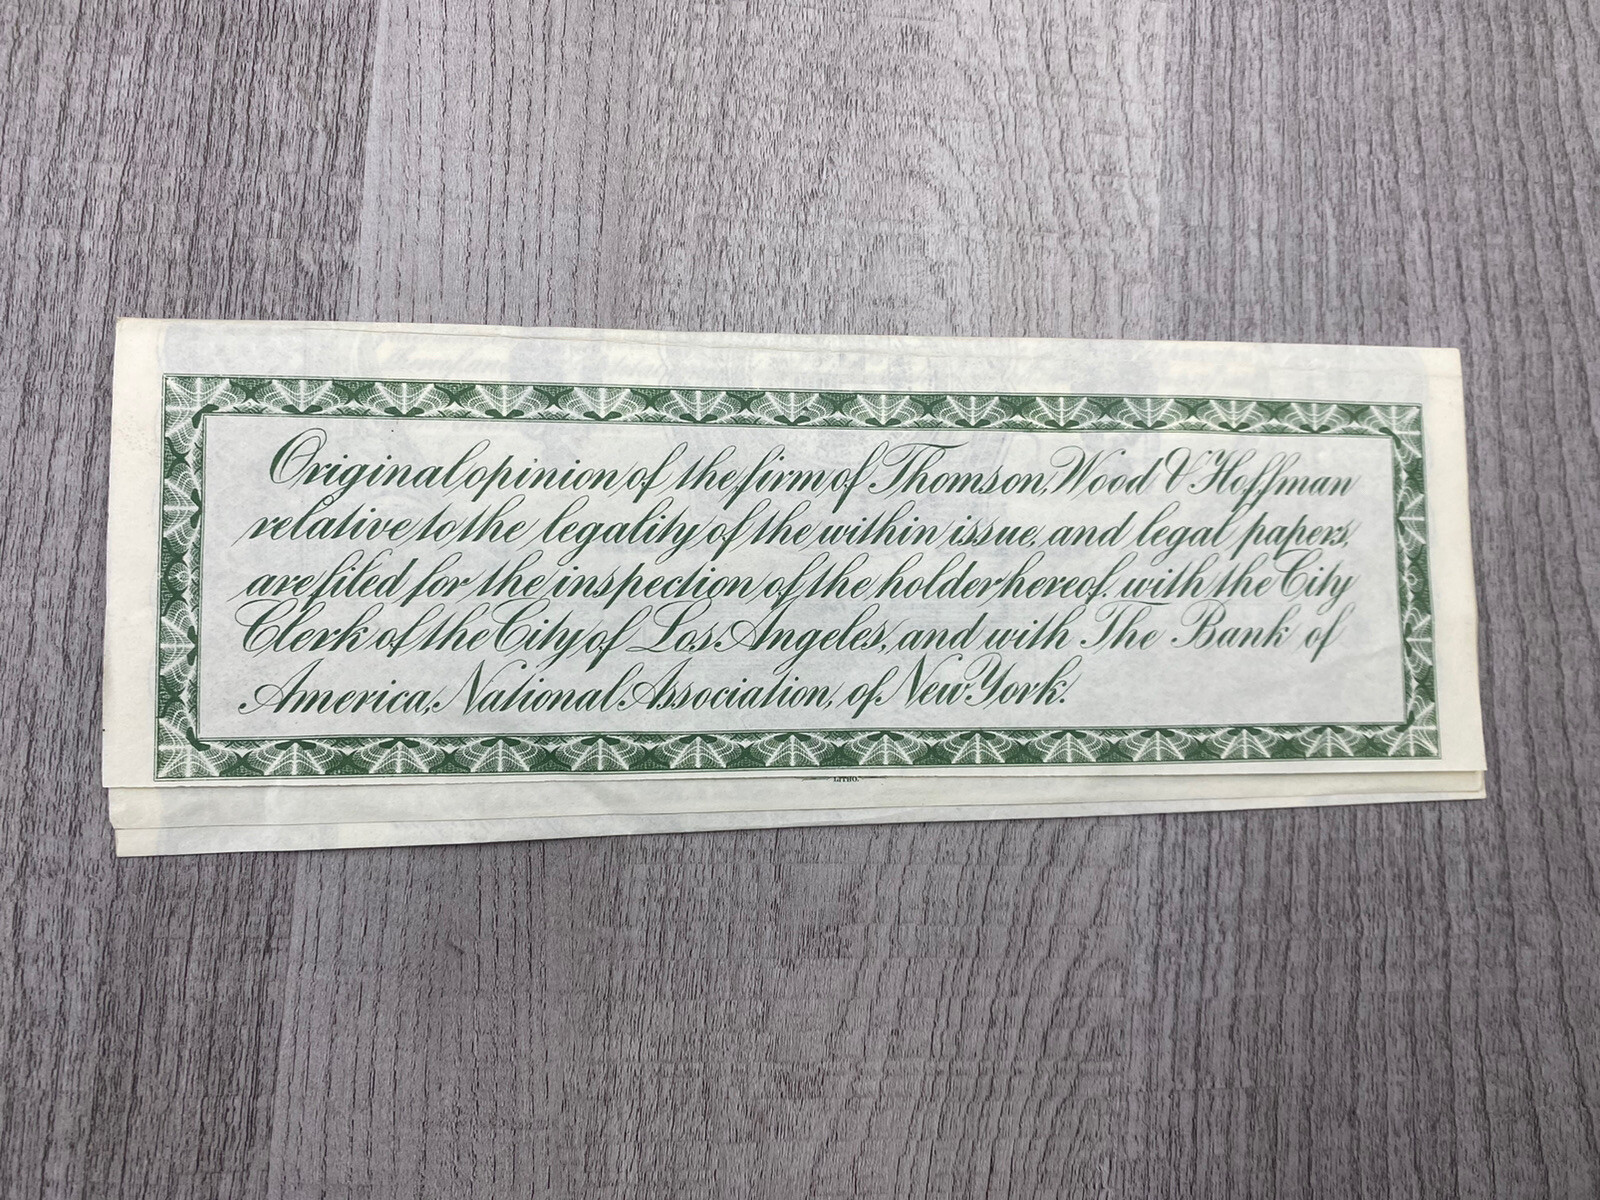 Original opinion of the firm of Thomson, Wood & Hoffman
relative to the legality of the within issue, and legal papers,
are filed for the inspection of the holder hereof, with the City
Clerk of the City of Los Angeles, and with The Bank of
America, National Association, of New York.
LITHO.